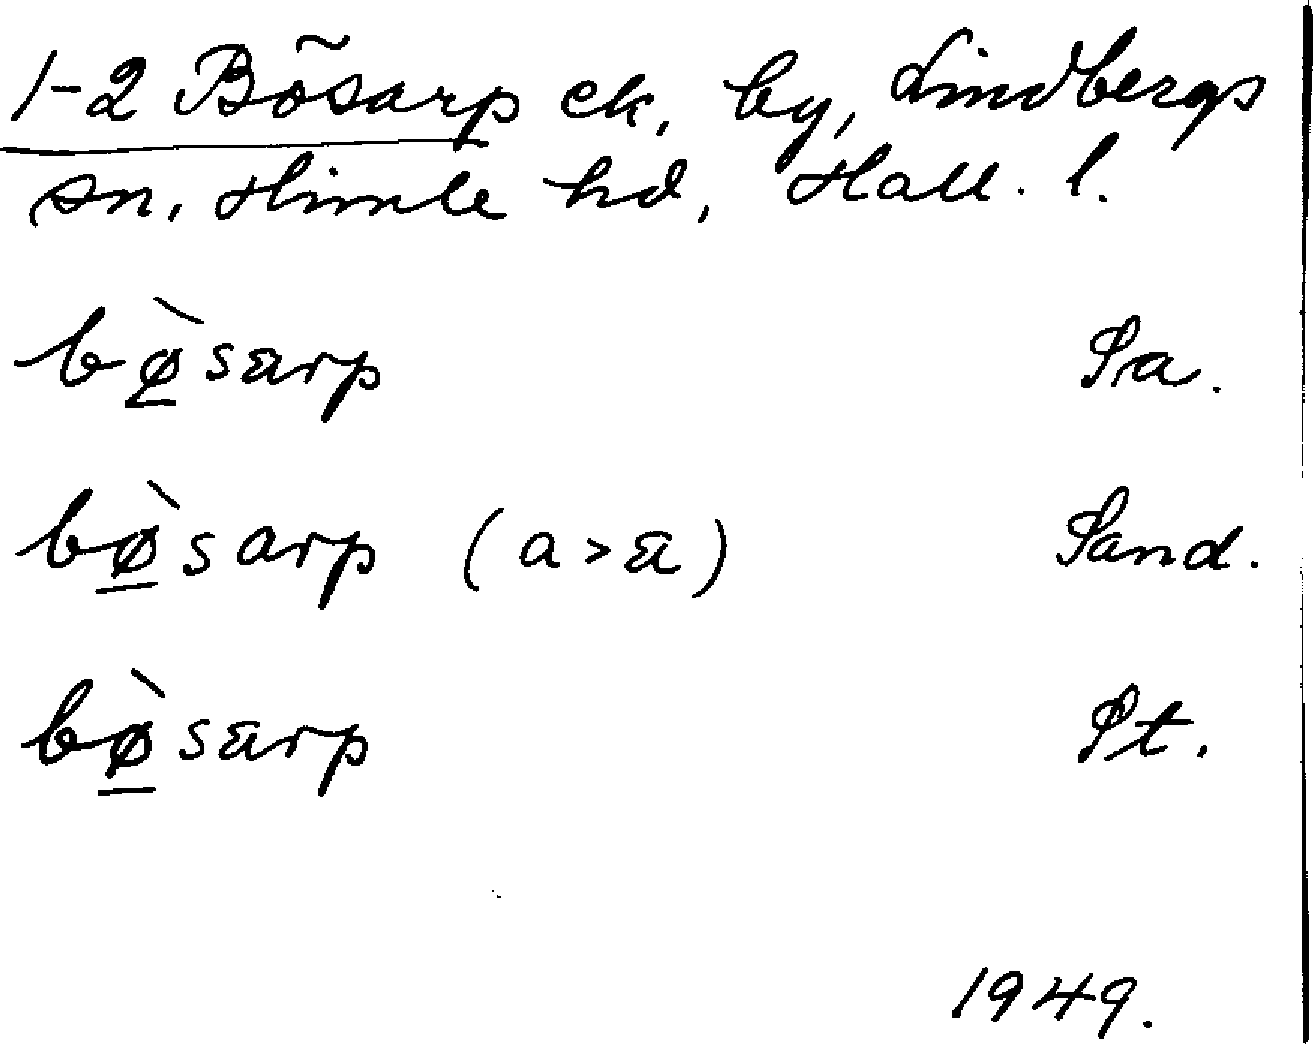 1-2 Bösarp ek, by, Lindbergs
sn, Himle hd, Hall. l.
bø̠̀sarp Sa.
bø̠̀sarp (a>a) Sand.
bø̠̀sarp St.
1949.